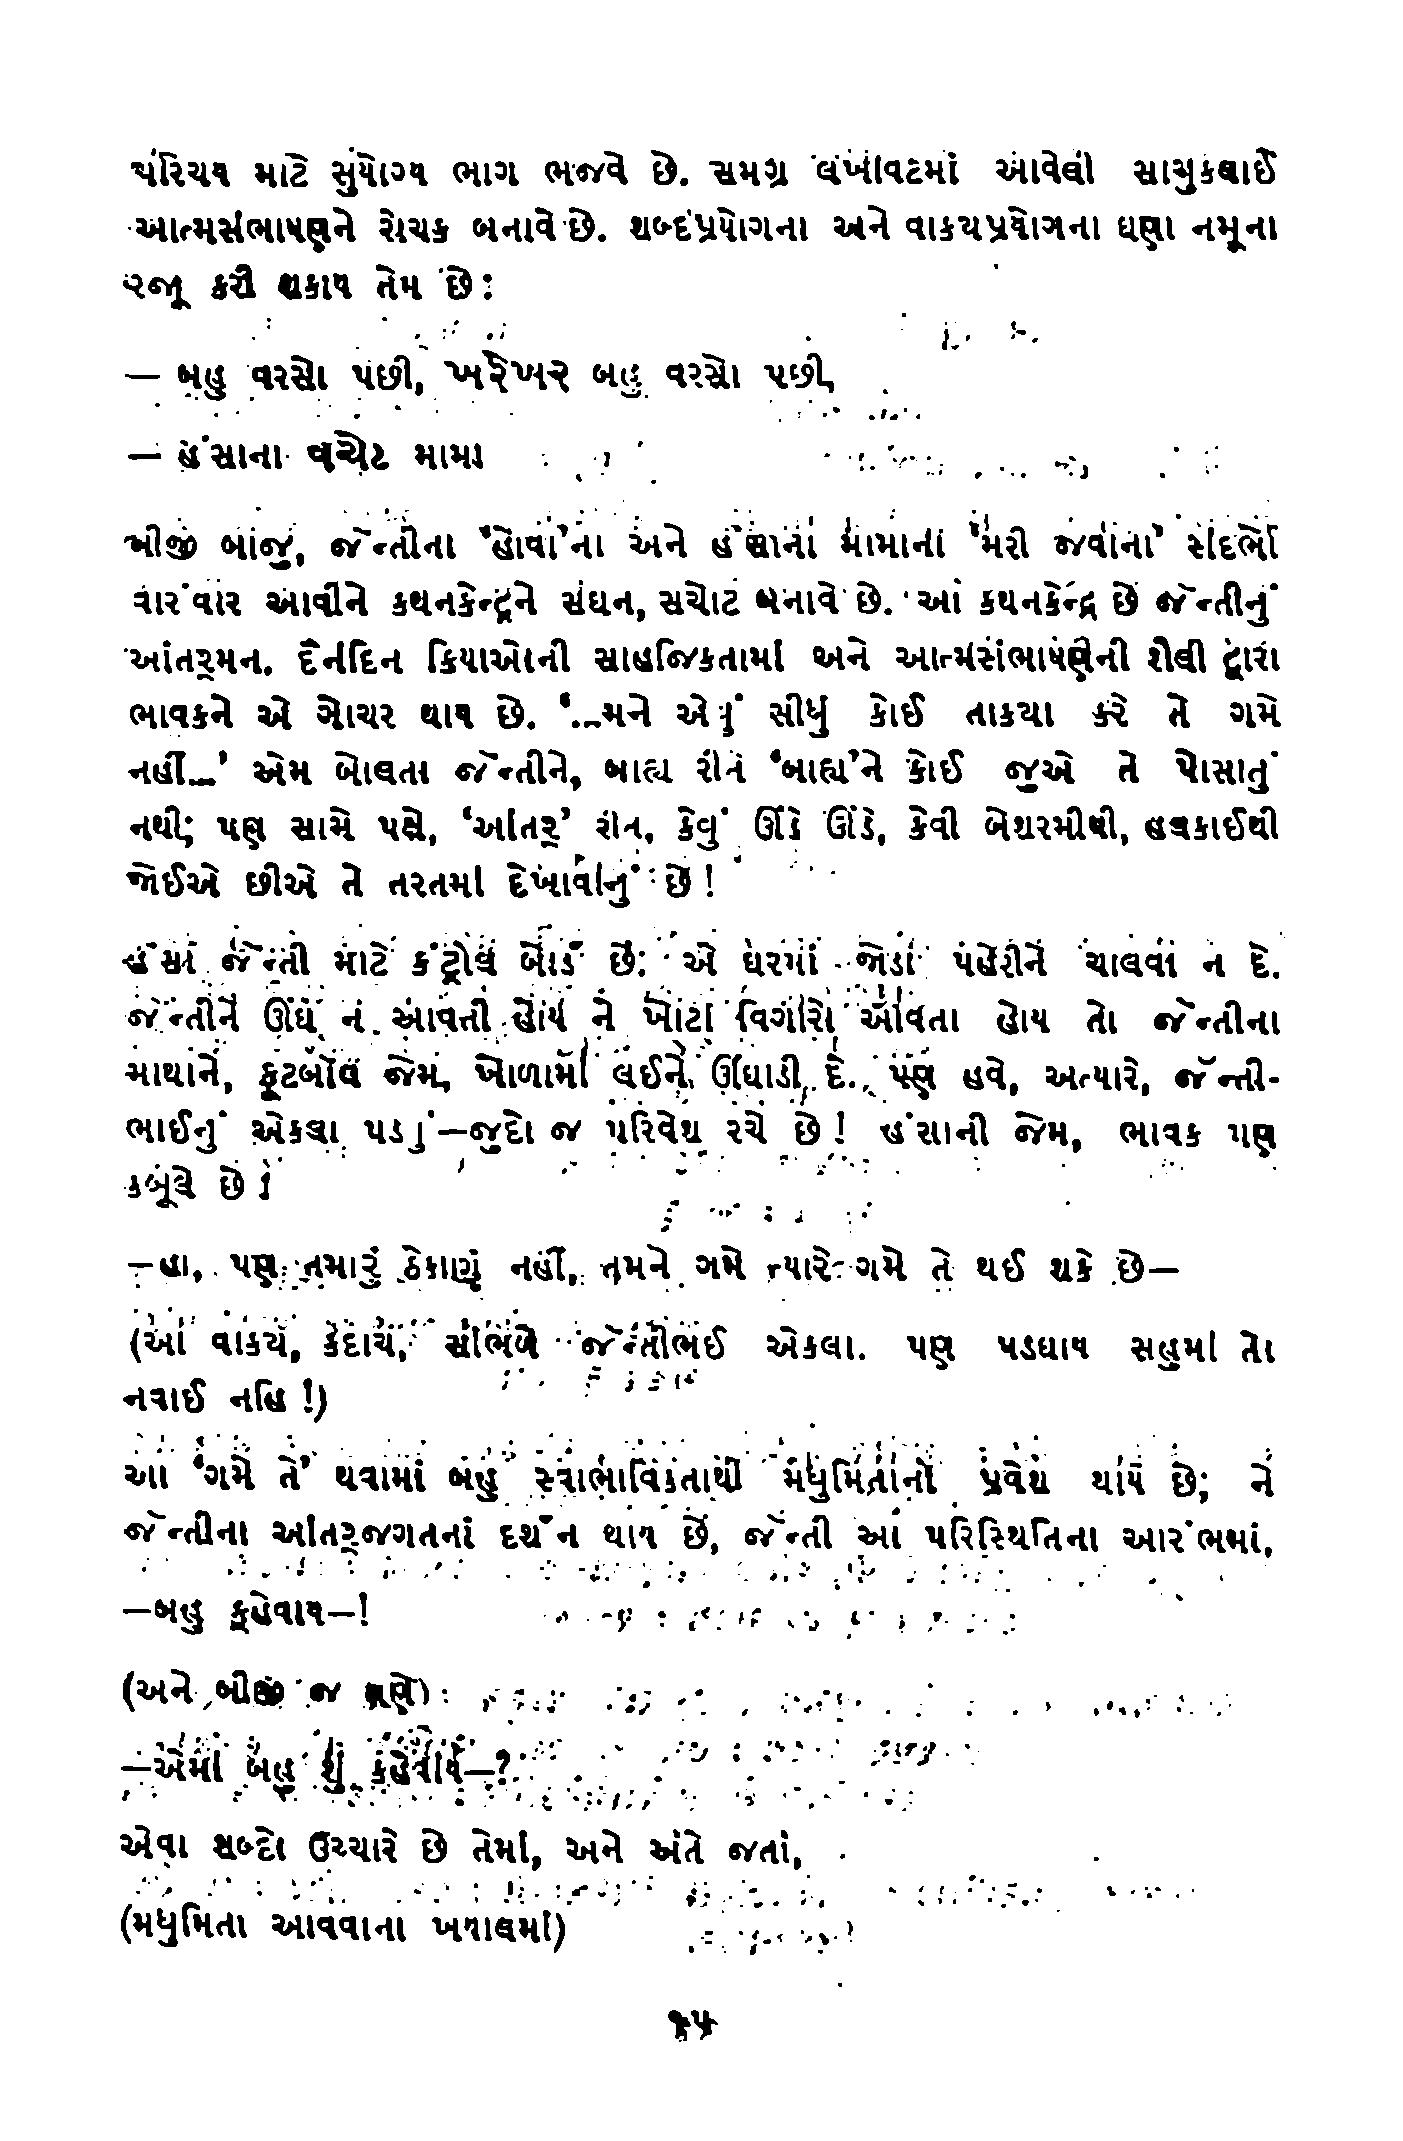 પરિચય માટે સુયોગ્ય ભાગ ભજવે છે. સમગ્ર લખાવટમાં આવેલી સાચુકલાઈ
આત્મસંભાષણને રોચક બનાવે છે. શબ્દપ્રયોગના અને વાકયપ્રયોગના ઘણા નમૂના
રજૂ કરી શકાય તેમ છે :
— બહુ વરસો પછી, ખરેખર બહુ વરસો પછી,
— હંસાના વચેટ મામા
બીજી બાજુ, જૅન્તીના ‘હોવા’ના અને હંસાના મામાના ‘મરી જવાના’ સંદર્ભો
વારંવાર આવીને કથનકેન્દ્રને સઘન, સચોટ બનાવે છે. આ કથનકેન્દ્ર છે જૅન્તીનું
આંતર્‌મન. દૈનંદિન ક્રિયાઓની સાહજિકતામાં અને આત્મસંભાષણની શૈલી દ્વારા
ભાવકને એ ગોચર થાય છે. ‘...મને એવું સીધું કોઈ તાકયા કરે તે ગમે
નહીં...’ એમ બોલતા જૅન્તીને, બાહ્ય રીતે ‘બાહ્ય’ને કોઈ જુએ તે પોસાતું
નથી; પણ સામે પક્ષે, ‘આંતર્‌’ રીતે, કેવું ઊંડે ઊંડે, કેવી બેશરમીથી, હલકાઈથી
જોઈએ છીએ તે તરતમાં દેખાવાનું છે !
હંસા જૅન્તી માટે કંટ્રોલ બોર્ડ છે: એ ઘરમાં જોડા પહેરીને ચાલવા ન દે.
જૅન્તીને ઊંઘ ન આવતી હોય ને ખોટા વિચારો આવતા હોય તો જૅન્તીના
માથાને, ફૂટબૉલ જેમ, ખોળામાં લઈને ઊંઘાડી દે. પણ હવે, અત્યારે, જૅન્તી-
ભાઈનું એકલા પડવું—જુદો જ પરિવેશ રચે છે ! હંસાની જેમ, ભાવક પણ
કબૂલે છે !
—હા, પણ તમારું ઠેકાણું નહીં, તમને ગમે ત્યારે ગમે તે થઈ શકે છે—
(આ વાકય, કદાચ, સાંભળે જૅન્તીભઈ એકલા. પણ પડઘાય સહુમાં તો
નવાઈ નહિ !)
આ ‘ગમે તે’ થવામાં બહુ સ્વાભાવિકતાથી મધુમિતાનો પ્રવેશ થાય છે; ને
જૅન્તીના આંતર્‌જગતનાં દર્શન થાય છે, જૅન્તી આ પરિસ્થિતિના આરંભમાં,
—બહુ કહેવાય—!
(અને બીજી જ ક્ષણે)
—એમાં બહુ શું કહેવાય—?
એવા શબ્દો ઉચ્ચારે છે તેમાં, અને અંતે જતાં,
(મધુમિતા આવવાના ખયાલમાં)
૧૫